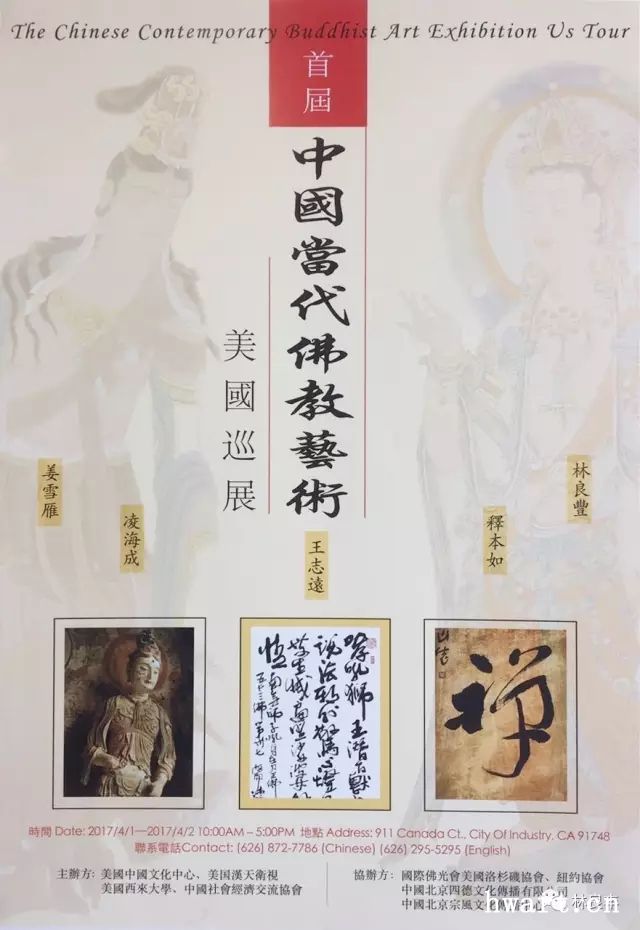 The Chinese Contemporary Buddhist Art Exhibition Us Tour
首屆
中國當代佛教藝術
美國巡展
姜雪雁
凌海成
王志遠
釋本如
林良豐
禪
時間 Date: 2017/4/1—2017/4/2 10:00AM – 5:00PM 地點 Address: 911 Canada Ct., City Of Industry, CA 91748
聯系電話Contact: (626) 872-7786 (Chinese) (626) 295-5295 (English)
主辦方: 美國中國文化中心、美国漢天衛視
美國西來大學、中國社會經濟交流協會
協辦方: 國際佛光會美國洛杉磯協會、紐約協會
中國北京四德文化傳播有限公司
中國北京宗風文化傳播中心